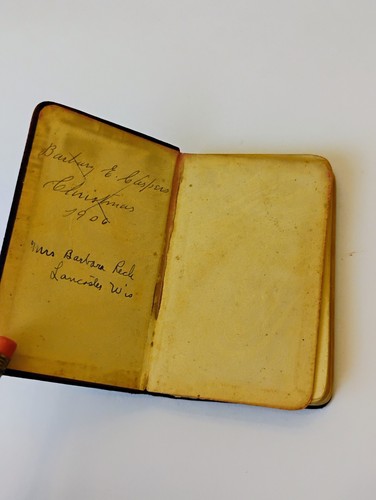 Barbary E Caspers
Christmas
1906
Mrs Barbara Reck
Lancaster Wis